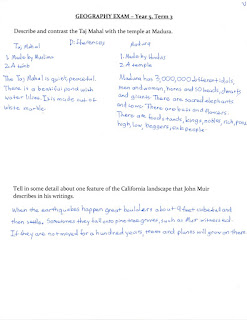 GEOGRAPHY EXAM - Year 5, Term 3
Describe and contrast the Taj Mahal with the temple at Madura.
Differences
Taj Mahal
Madura
1. Made by Muslims
1. Made by Hindus
2. A tomb
2. A temple
The Taj Mahal is quiet, peaceful.
There is a beautiful pond with
water lilies. It is made out of
white marble.
Madura has 3,000,000 different idols,
men and women, horns and 50 heads, dwarfs
and giants. There are sacred elephants
and cows. There are bats and
There are bands, kings, nobles, rich, poor,
high, low, beggars, sick people.
Tell in some detail about one feature of the California landscape that John Muir
describes in his writings.
When the earthquakes happen great boulders about 4 feet
then settle. Sometimes they fall onto pine tree groves, such as Muir witnessed.
If they are not moved for a hundred years, trees and plants will grow on them.